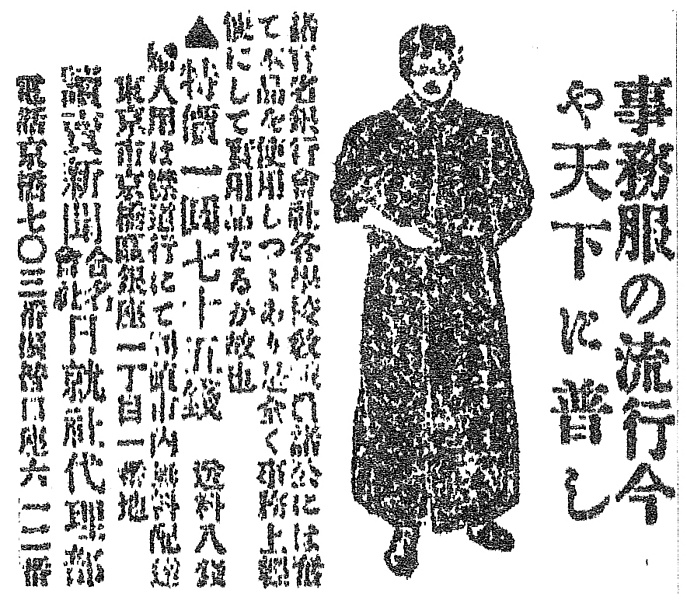 事務服の流行今
や天下に普し
諸官省銀行會社各學校敎員諸公には
て本品を使用しつゝあり是全く事務上
便にして實用品たるが故也
▲特價一圓七十五錢 送料八錢
婦人用は 行にて 市內無料配達
東京市京橋區銀座一丁目一番地
讀賣新聞 合名會社日就社代理部
電話京橋七〇三番振替口座六一二三番